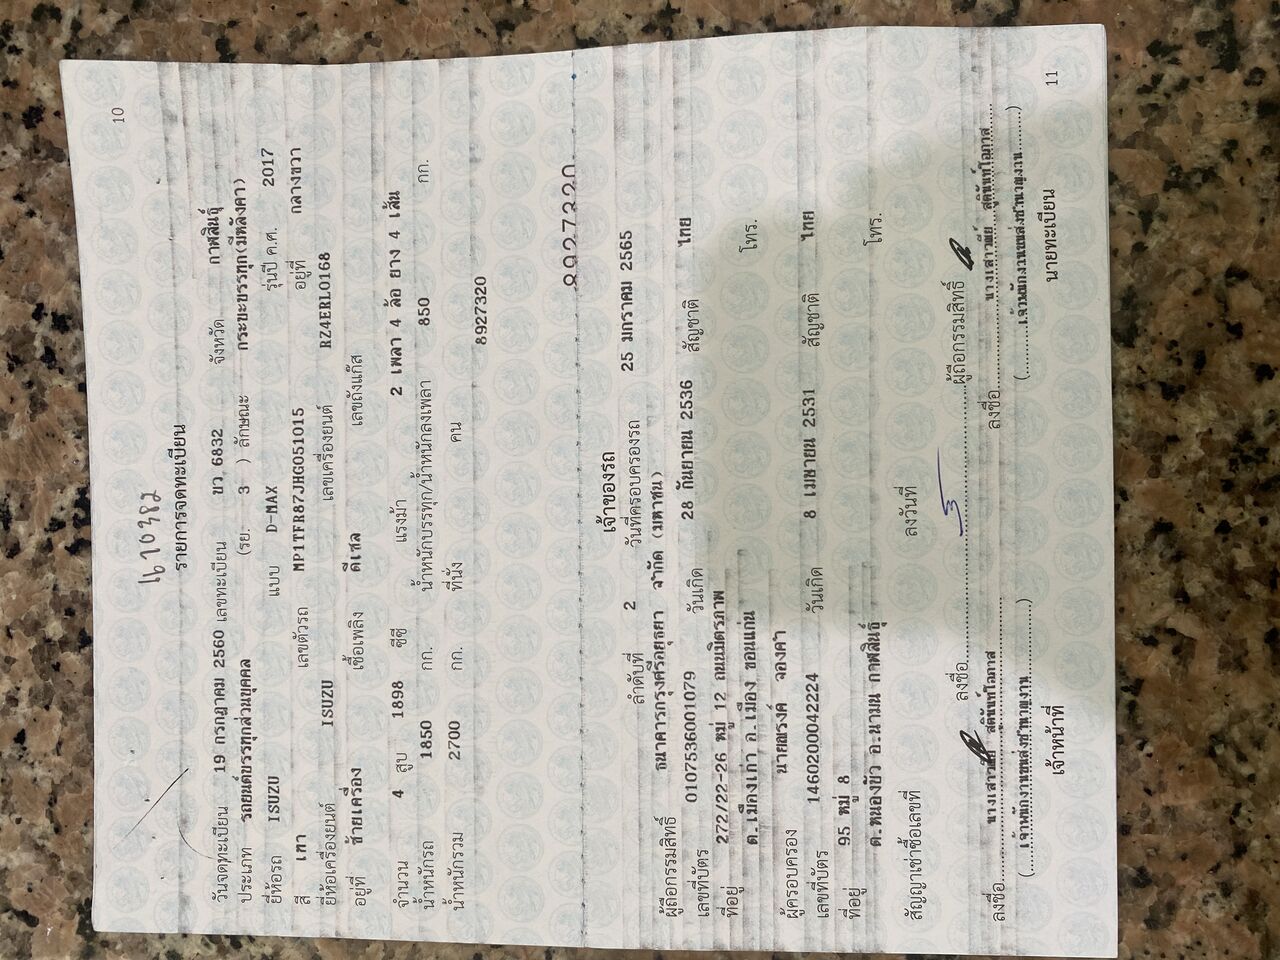 10
1670382
รายการจดทะเบียน
วันจดทะเบียน 19 กรกฎาคม 2560 เลขทะเบียน ขว 6832 จังหวัด กาฬสินธุ์
ประเภท รถยนต์บรรทุกส่วนบุคคล (รย. 3 ) ลักษณะ กระบะบรรทุก(มีหลังคา)
ยี่ห้อรถ ISUZU แบบ D-MAX รุ่นปี ค.ศ. 2017
สี เทา เลขตัวรถ MP1TFR87JHG051015 อยู่ที่ กลางขวา
ยี่ห้อเครื่องยนต์ ISUZU เลขเครื่องยนต์ RZ4ERL0168
อยู่ที่ ซ้ายเครื่อง เชื้อเพลิง ดีเซล เลขถังแก๊ส
จำนวน 4 สูบ 1898 ซีซี แรงม้า 2 เพลา 4 ล้อ ยาง 4 เส้น
น้ำหนักรถ 1850 กก. น้ำหนักบรรทุก/น้ำหนักลงเพลา 850 กก.
น้ำหนักรวม 2700 กก. ที่นั่ง คน
8927320
เจ้าของรถ
ลำดับที่ 2 วันที่ครอบครองรถ 25 มกราคม 2565
ผู้ถือกรรมสิทธิ์ ธนาคารกรุงศรีอยุธยา จำกัด (มหาชน)
เลขที่บัตร 0107536001079 วันเกิด 28 กันยายน 2536 สัญชาติ ไทย
ที่อยู่ 272/22-26 หมู่ 12 ถนนมิตรภาพ
ต.เมืองเก่า อ.เมือง ขอนแก่น โทร.
ผู้ครอบครอง นายณรงค์ จองคำ
เลขที่บัตร 1460200042224 วันเกิด 8 เมษายน 2531 สัญชาติ ไทย
ที่อยู่ 95 หมู่ 8
ต.หนองบัว อ.นามน กาฬสินธุ์ โทร.
สัญญาเช่าซื้อเลขที่ ลงวันที่
ลงชื่อ ผู้ถือกรรมสิทธิ์
ลงชื่อ นางเสาวนีย์ สุคันทโอภาส ลงชื่อ นางเสาวนีย์ สุคันทโอภาส
(เจ้าพนักงานขนส่งชำนาญงาน) (เจ้าพนักงานขนส่งชำนาญงาน)
เจ้าหน้าที่ นายทะเบียน
11